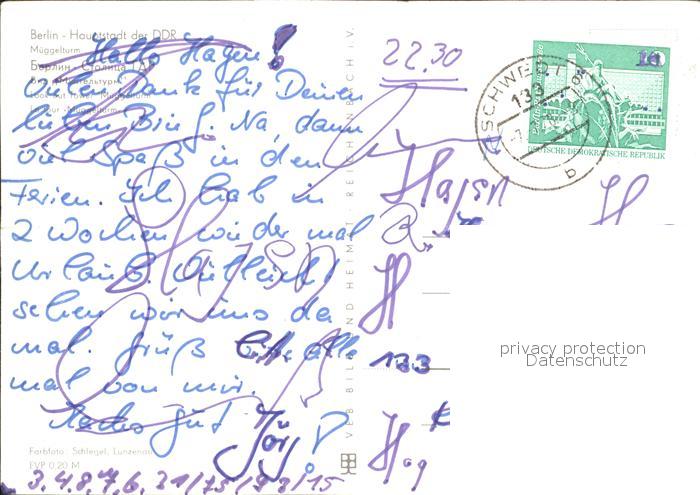 Berlin - Hauptstadt der DDR
Müggelturm
Берлин - Столица ГДР
Hallo Hagen!
vielen Dank für Deinen
lieben Brief. Na dann
viel Spaß in den
Ferien. Ich hab in
2 Wochen wieder mal
Urlaub. Vielleicht
sehen wir uns da
mal. Grüß bitte alle
mal von mir.
Machs gut
Jörg
Farbfoto: Schlegel, Lunzenau
EVP 0,20 M
3.4.8.7.6.
VEB BILD UND HEIMAT REICHENBACH i. V.
22.30
SCHWEDT
133
b
10
DEUTSCHE DEMOKRATISCHE REPUBLIK
Hagen
H
Hagen
H
133
Hag
privacy protection
Datenschutz